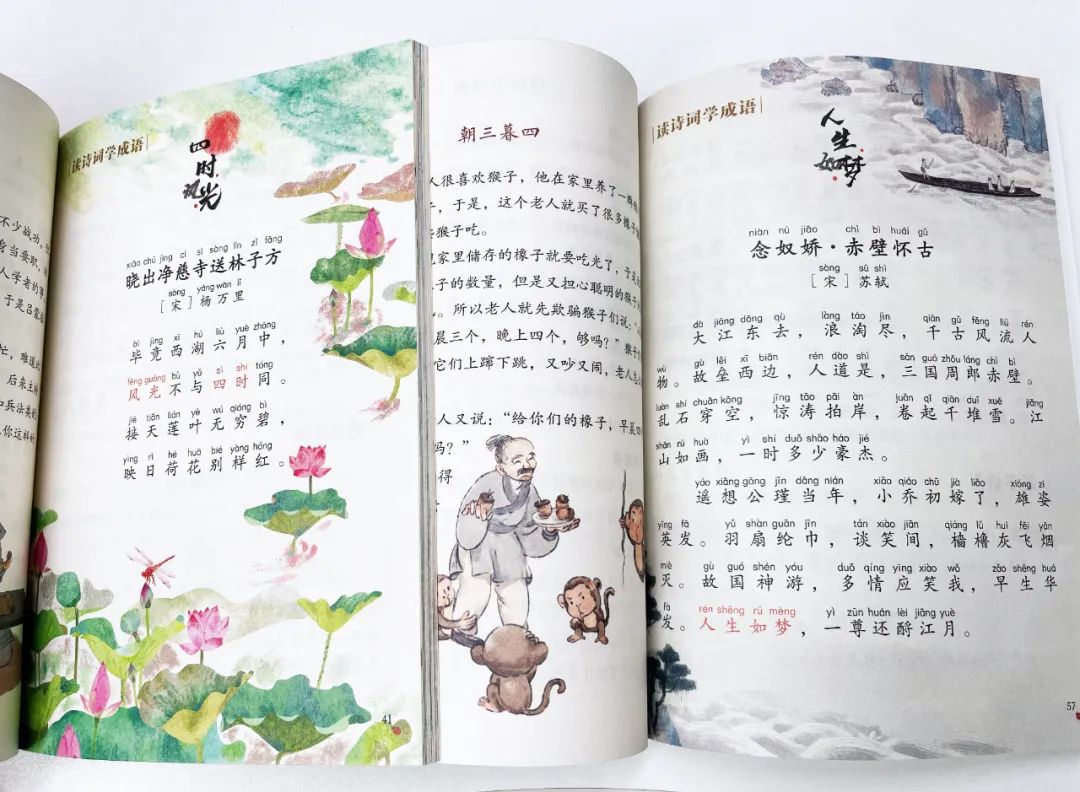 不少战功。
身当要职，
人学者的
于是吕蒙
忙，难道
后来主持
和兵法类的
你这样的
读诗词学成语
四时风光
xiǎo chū jìng cí sì sòng lín zǐ fāng
晓出净慈寺送林子方
sòng yáng wàn lǐ
［宋］杨万里
bì jìng xī hú liù yuè zhōng
毕竟西湖六月中，
fēng guāng bù yǔ sì shí tóng
风光不与四时同。
jiē tiān lián yè wú qióng bì
接天莲叶无穷碧，
yìng rì hé huā bié yàng hóng
映日荷花别样红。
41
朝三暮四
人很喜欢猴子，他在家里养了一群
子，于是，这个老人就买了很多橡子
猴子吃。
家里储存的橡子就要吃光了，于是
子的数量，但是又担心聪明的猴子
。所以老人就先欺骗猴子们说：“
晨三个，晚上四个，够吗？”猴子
它们上蹿下跳，又吵又闹，老人
人又说：“给你们的橡子，早晨四
吗？”
得
读诗词学成语
人生如梦
niàn nú jiāo chì bì huái gǔ
念奴娇·赤壁怀古
sòng sū shì
［宋］苏轼
dà jiāng dōng qù làng táo jìn qiān gǔ fēng liú rén
大江东去，浪淘尽，千古风流人
wù gù lěi xī biān rén dào shì sān guó zhōu láng chì bì
物。故垒西边，人道是，三国周郎赤壁。
luàn shí chuān kōng jīng tāo pāi àn juǎn qǐ qiān duī xuě jiāng
乱石穿空，惊涛拍岸，卷起千堆雪。江
shān rú huà yì shí duō shǎo háo jié
山如画，一时多少豪杰。
yáo xiǎng gōng jǐn dāng nián xiǎo qiáo chū jià liǎo xióng zī
遥想公瑾当年，小乔初嫁了，雄姿
yīng fā yǔ shàn guān jīn tán xiào jiān qiáng lǔ huī fēi yān
英发。羽扇纶巾，谈笑间，樯橹灰飞烟
miè gù guó shén yóu duō qíng yīng xiào wǒ zǎo shēng huá
灭。故国神游，多情应笑我，早生华
fà rén shēng rú mèng yì zūn huán lèi jiāng yuè
发。人生如梦，一尊还酹江月。
57